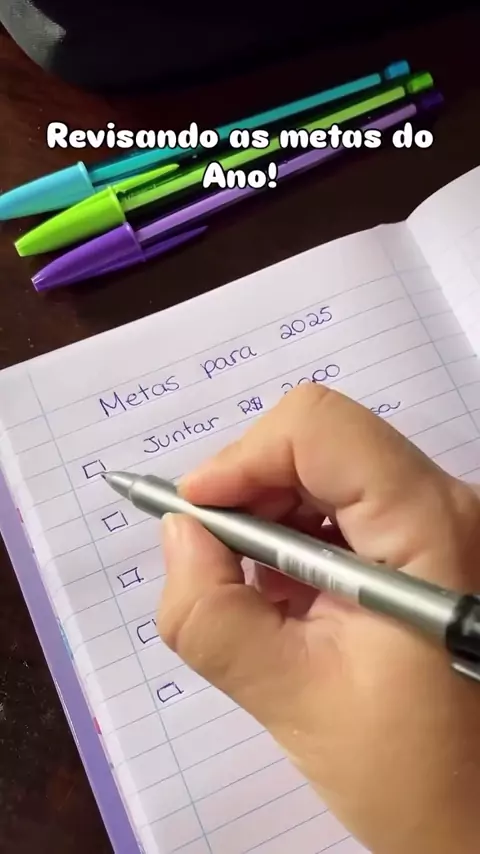 Revisando as metas do
Ano!
Metas para 2025
Juntar R$